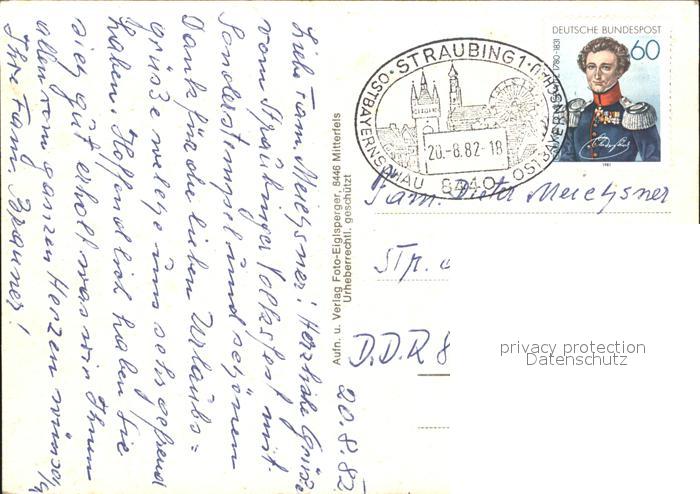 Liebe Fam. Meichsner! Herzliche Grüße
vom Straubinger Volksfest mit
Sonderstempel und schönen
Dank für die lieben Urlaubs=
grüße welche uns sehr gefreud
haben. Hoffendlich haben Sie
sich gut erholt was wir Ihnen
allen vom ganzen Herzen wünsch
Ihre Fam. Brauner!
20.8.82
Aufn. u. Verlag Foto-Eiglsperger, 8446 Mitterfels
Urheberrechtl. geschützt
STRAUBING 1
OSTBAYERNSCHAU
20.-8.82-18
8440
DEUTSCHE BUNDESPOST
60
1780-1831
1981
Fam. Dieter Meichsner
Str. d
D.D.R 8
privacy protection
Datenschutz